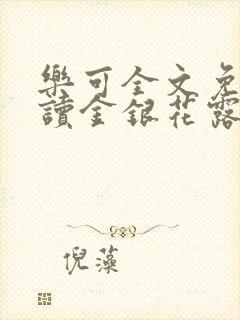 樂可全文免
讀金銀花露
倪藻